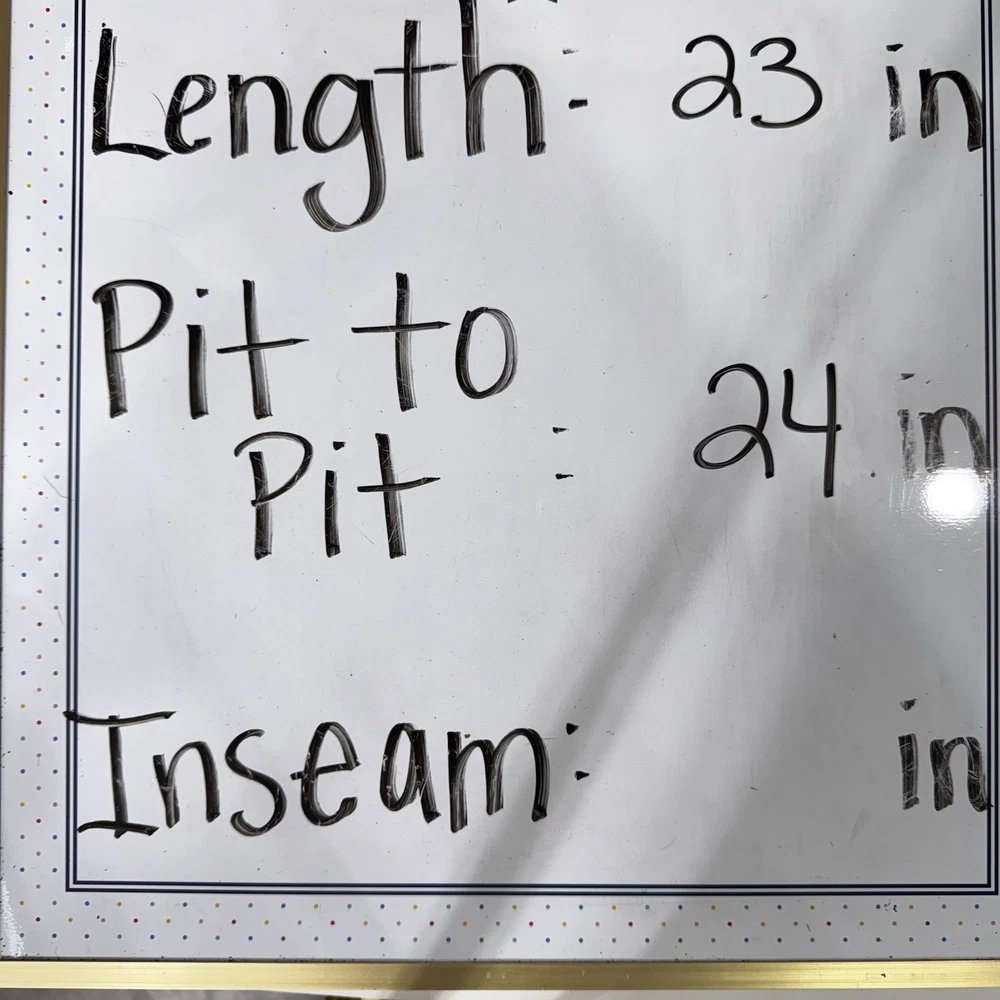 Length: 23 in
Pit to
Pit : 24 in
Inseam: in